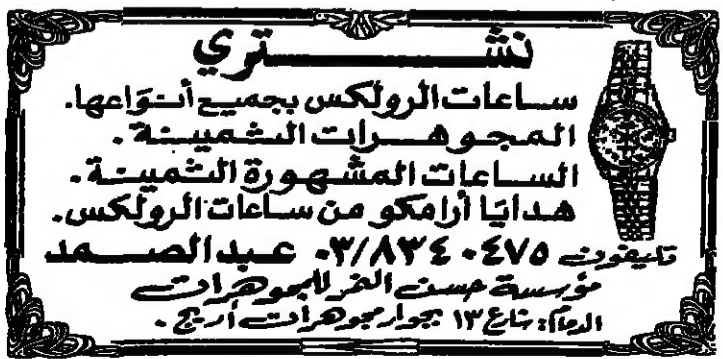 نشتري
ساعات الرولكس بجميع أنواعها.
المجوهرات الثمينة.
الساعات المشهورة الثمينة.
هدايا أرامكو من ساعات الرولكس.
تليفون ٠٣/٨٣٤٠٤٧٥ عبد الصمد
مؤسسة حسن الخر للمجوهرات
الدمام: شارع ١٣ بجوار مجوهرات أريج.